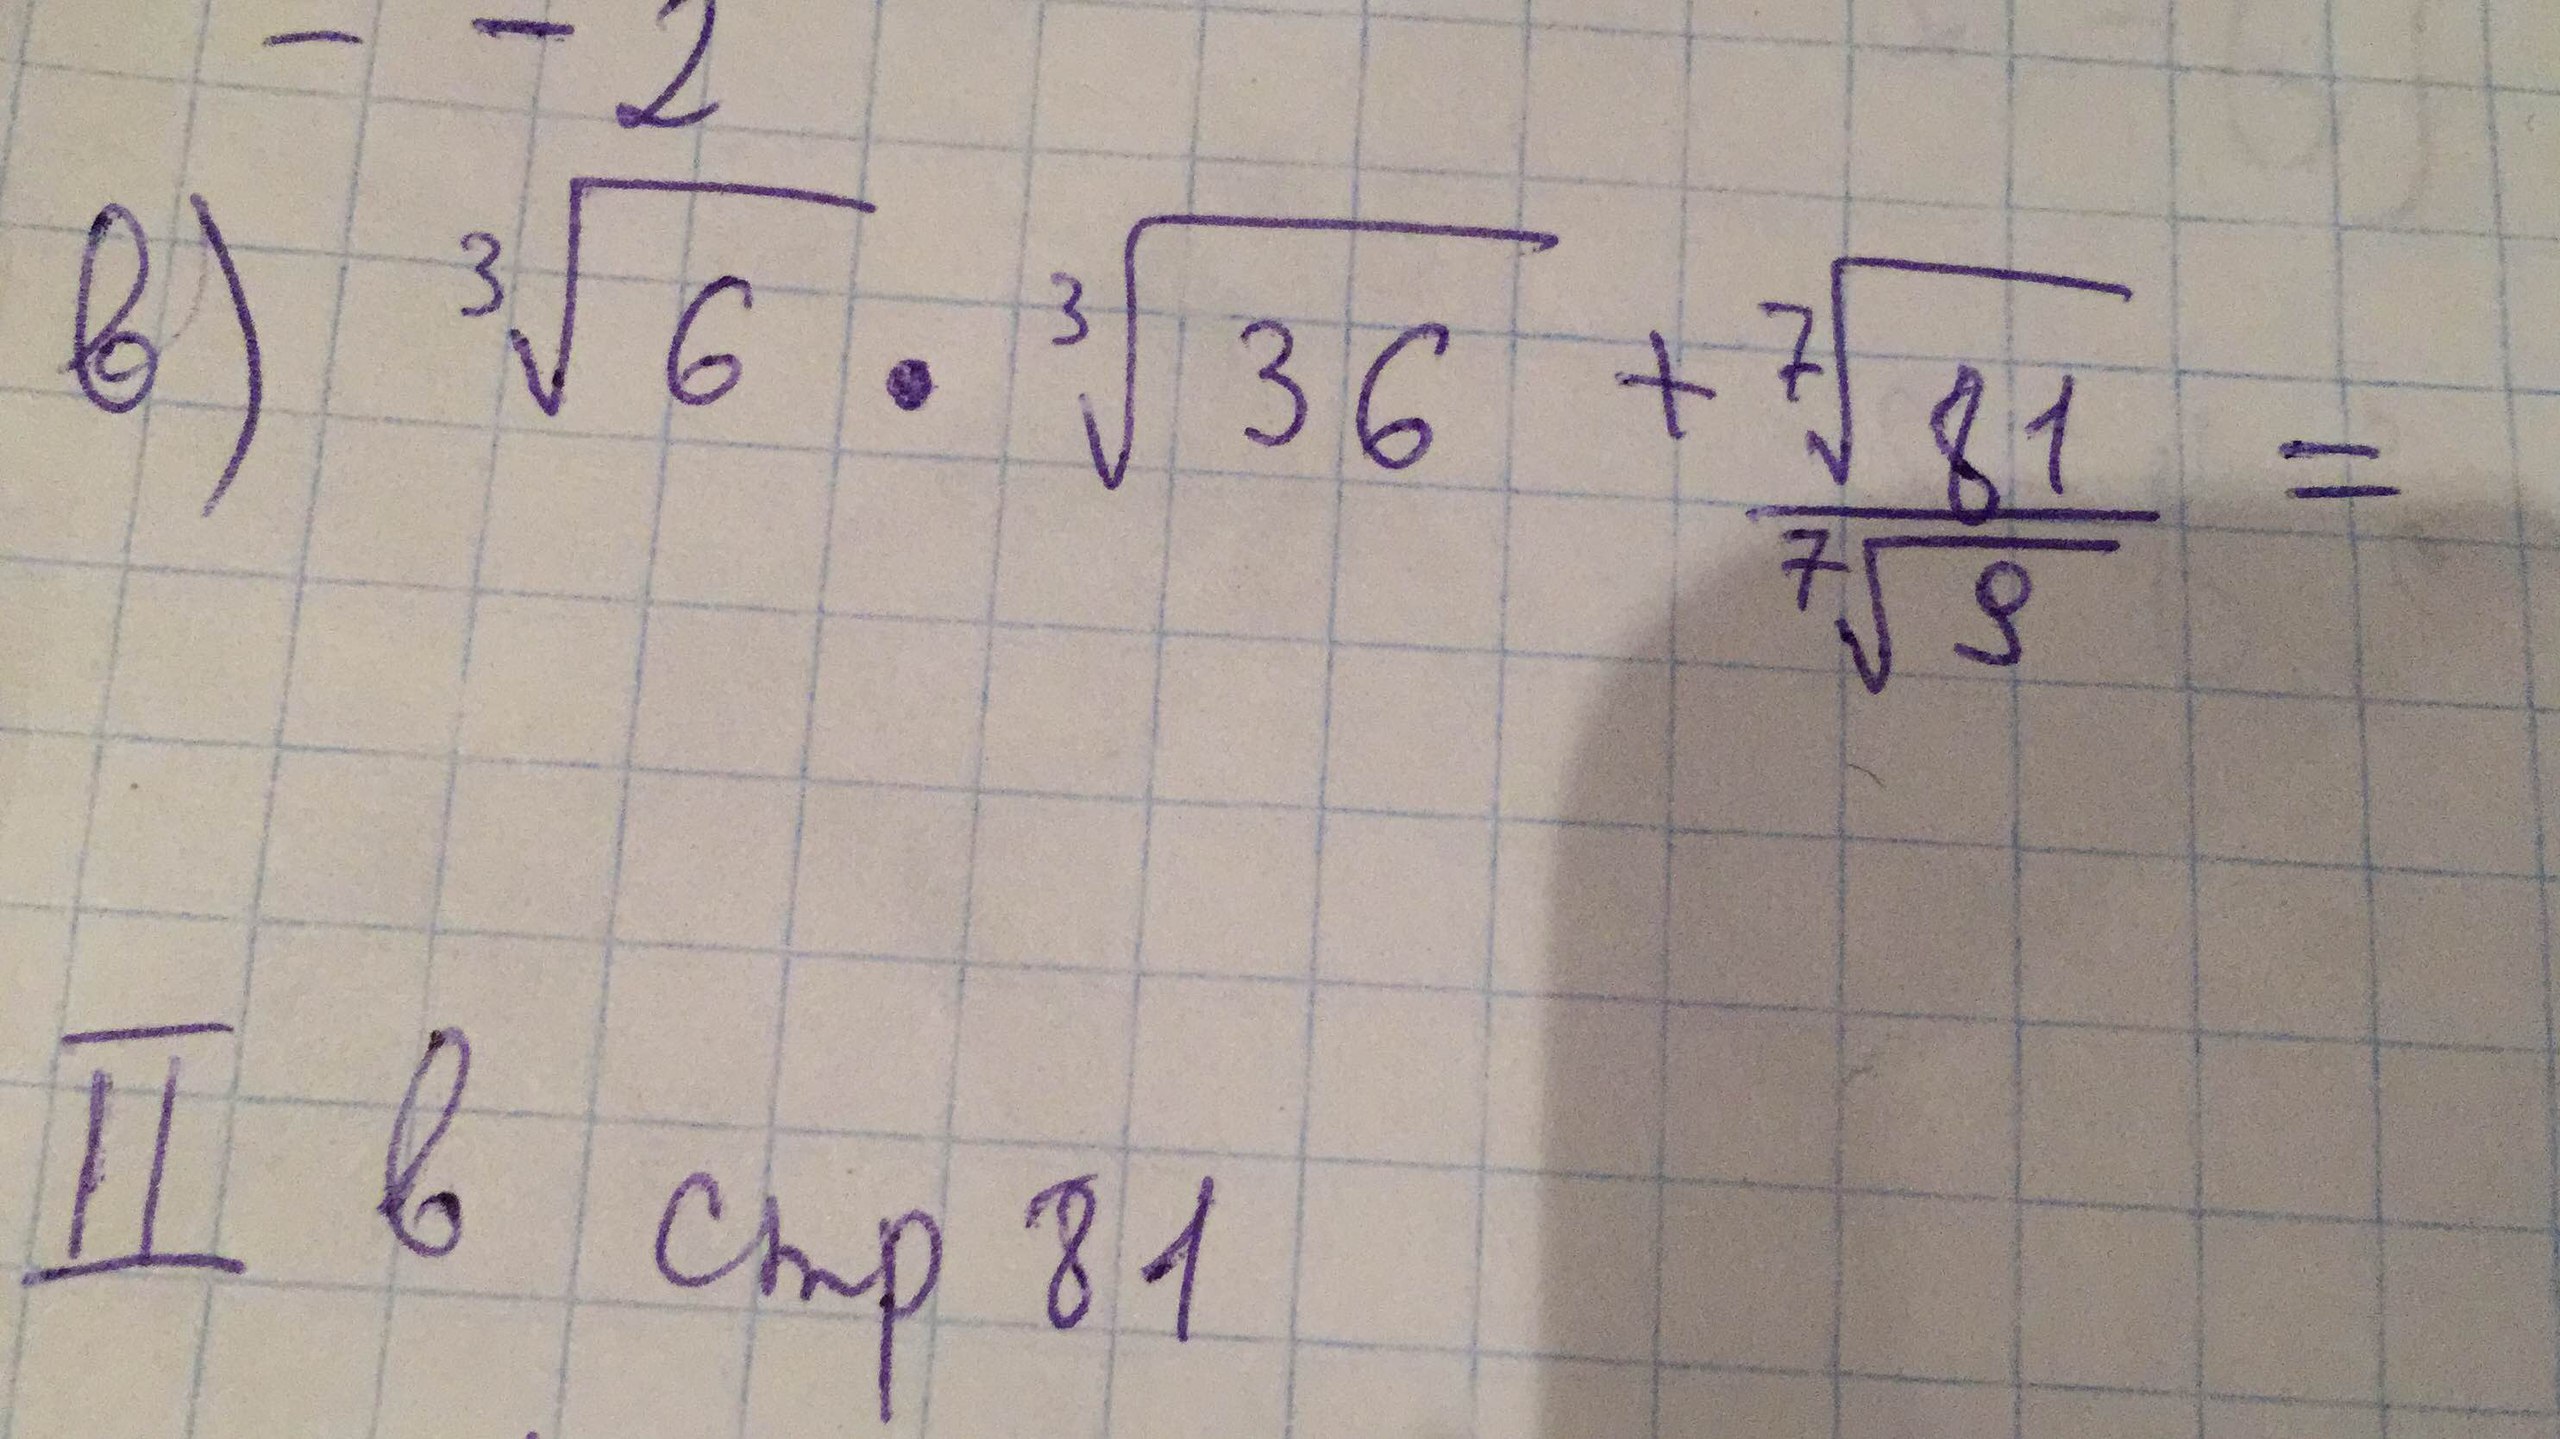 - - 2
в) ∛6 · ∛36 + ⁷√81 / ⁷√9 =
II в стр 81